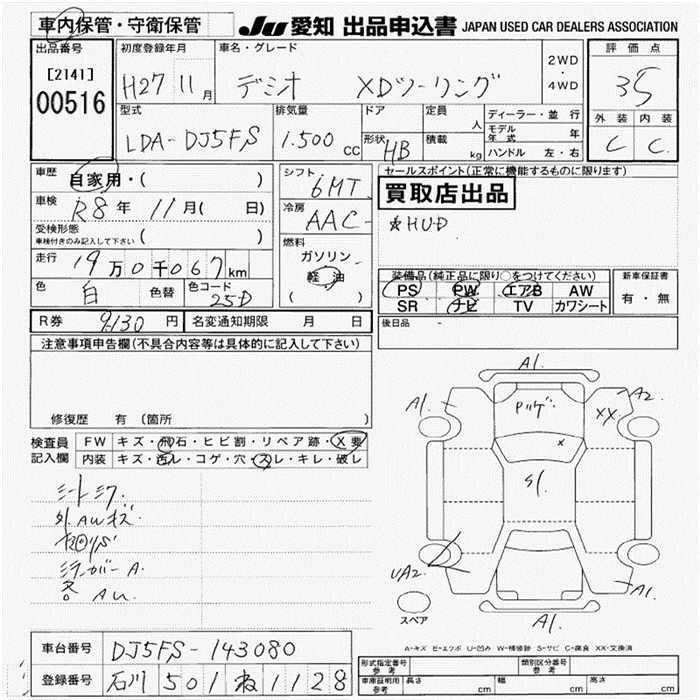 車内保管・守衛保管
JU 愛知 出品申込書 JAPAN USED CAR DEALERS ASSOCIATION
出品番号
[2141]
00516
初度登録年月
H27 11月
車名・グレード
デミオ XDツーリング
2WD
・
4WD
評価点
3.5
外装 内装
C C
型式
LDA-DJ5FS
排気量
1.500 cc
ドア
形状 HB
定員
人
積載
kg
ディーラー・並行
モデル年式 年
ハンドル 左・右
車歴
自家用・( )
車検
R8年 11月( 日)
受検形態
車検付きのみ記入して下さい ( )
走行
19万0千067km
色
白
色替
色コード
25D
シフト
6MT
冷房
AAC
燃料
ガソリン
軽油
( )
セールスポイント(正常に機能するものに限ります)
買取店出品
☆HUD
装備品(純正品に限り○をつけてください)
PS PW エアB AW
SR ナビ TV カワシート
新車保証書
有・無
後日品 -
R券 9,130 円
名変通知期限 月 日
注意事項申告欄(不具合内容等は具体的に記入して下さい)
修復歴 有 (箇所 )
検査員
記入欄
FW キズ・飛石・ヒビ割・リペア跡・X要
内装 キズ・汚レ・コゲ・穴・スレ・キレ・破レ
シートシワ.
AWキズ.
ミラーカバー A.
各 AU.
A1.
A1.
A2.
XX.
x
S1.
UA2.
A1.
A1.
スペア
A-キズ E-エクボ U-凹み W-補修跡 S-サビ C-腐食 XX-交換済
車台番号
DJ5FS-143080
登録番号
石川 501 ね 1128
形式指定番号
参考
類別区分番号
参考
車庫証明用
参考
長さ cm
幅 cm
高さ cm